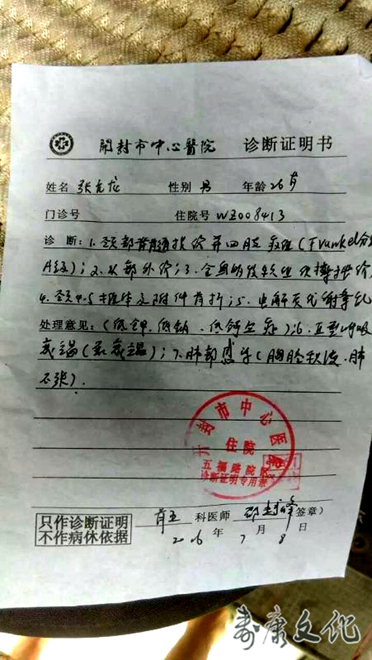 开封市中心醫院 诊断证明书
姓名 张 性别 男 年龄 26岁
门诊号 住院号 WZ008413
诊 断：1.颈部脊髓损伤并四肢瘫(Frankel分级
A级)；2.头部外伤；3.全身多发软组织挫
4.颈4.5椎体及附件骨折；5.电解质代谢紊乱
处理意见：(低钾、低钠、低钙血症)；6.I型呼吸
衰竭()；7.肺部感染(胸腔积液、肺
不张)。
开封市中心医院
住院
五福路院区
诊断证明专用章
只作诊断证明
不作病休依据
骨五 科医师 签章)
2016年 7月 8日
寿康文化